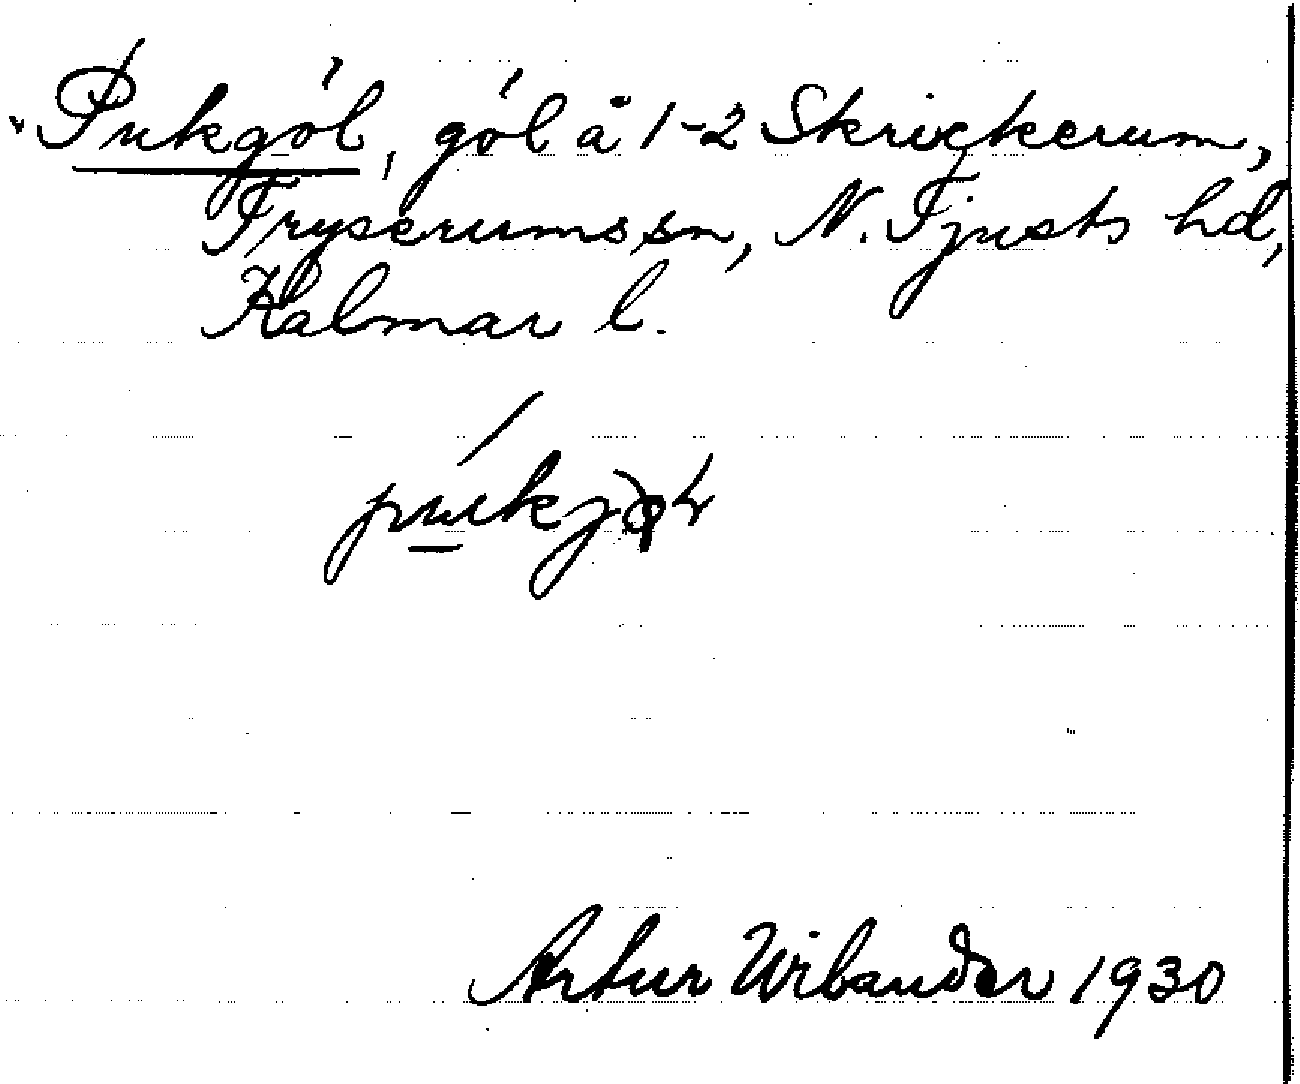 Pukgól, gól å 1-2 Skrickerum,
Tryserums sn, N. Tjusts hd,
Kalmar l.
Artur Wibander 1930